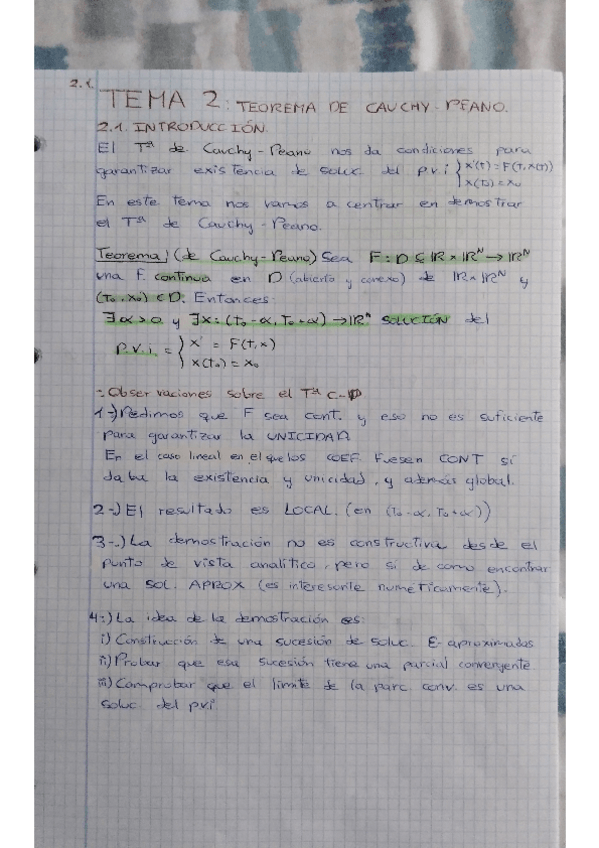 2.1.
TEMA 2: TEOREMA DE CAUCHY-PEANO.
2.1. INTRODUCCIÓN.
El Tª de Cauchy-Peano nos da condiciones para
garantizar existencia de soluc. del p.v.i { x'(t) = F(t,x(t))
x(t₀) = x₀
En este tema nos vamos a centrar en demostrar
el Tª de Cauchy-Peano.
Teorema| (de Cauchy-Peano) Sea F: D ⊆ ℝ × ℝᴺ → ℝᴺ
una F. continua en D (abierto y conexo) de ℝ × ℝᴺ y
(t₀, x₀) ∈ D. Entonces:
∃ α > 0 y ∃ x: (t₀ - α, t₀ + α) → ℝᴺ SOLUCIÓN del
p.v.i. = { x' = F(t,x)
x(t₀) = x₀
- Observaciones sobre el Tª C-P
1-) Pedimos que F sea cont. y eso no es suficiente
para garantizar la UNICIDAD.
En el caso lineal en el que los COEF. fuesen CONT sí
daba la existencia y unicidad, y además global.
2-) El resultado es LOCAL. (en (t₀ - α, t₀ + α))
3-) La demostración no es constructiva desde el
punto de vista analítico, pero sí de como encontrar
una SOL. APROX (es interesante numéricamente).
4-) La idea de la demostración es:
i) Construcción de una sucesión de soluc. ε-aproximadas
ii) Probar que esa sucesión tiene una parcial convergente
iii) Comprobar que el límite de la parc. conv. es una
soluc. del p.v.i